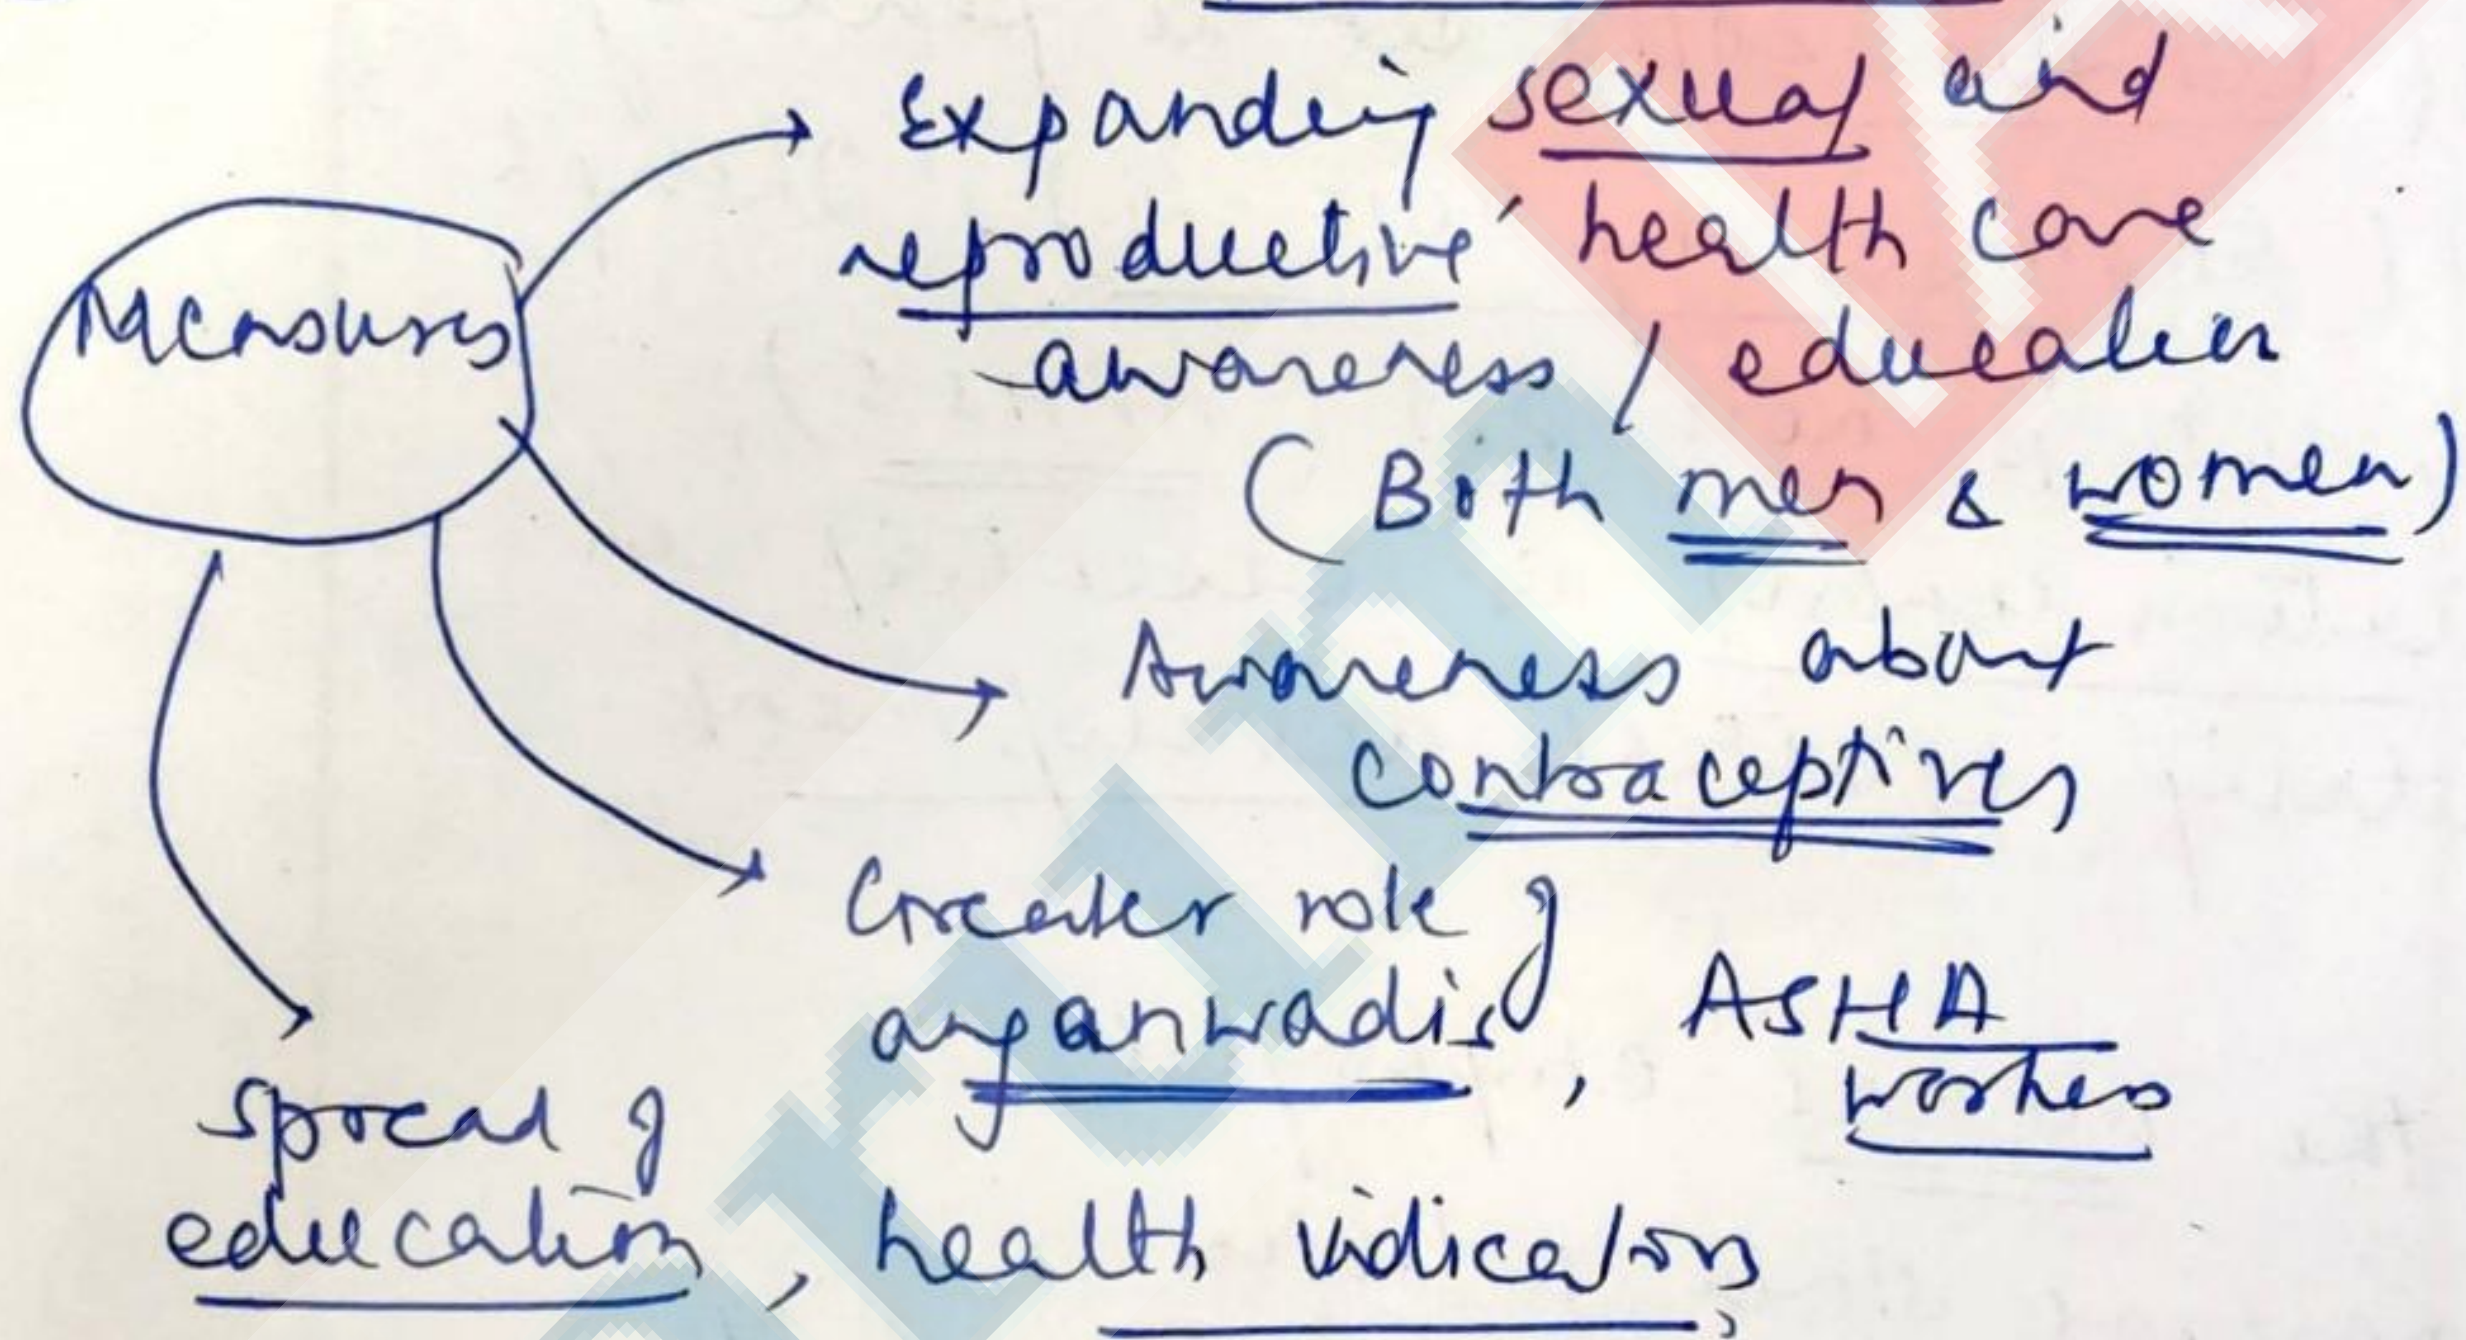 Measures
Expanding sexual and
reproductive health care
awareness / education
(Both men & women)
Awareness about
contraceptives
Greater role of
anganwadis, ASHA
workers
Spread of
education, health indicators